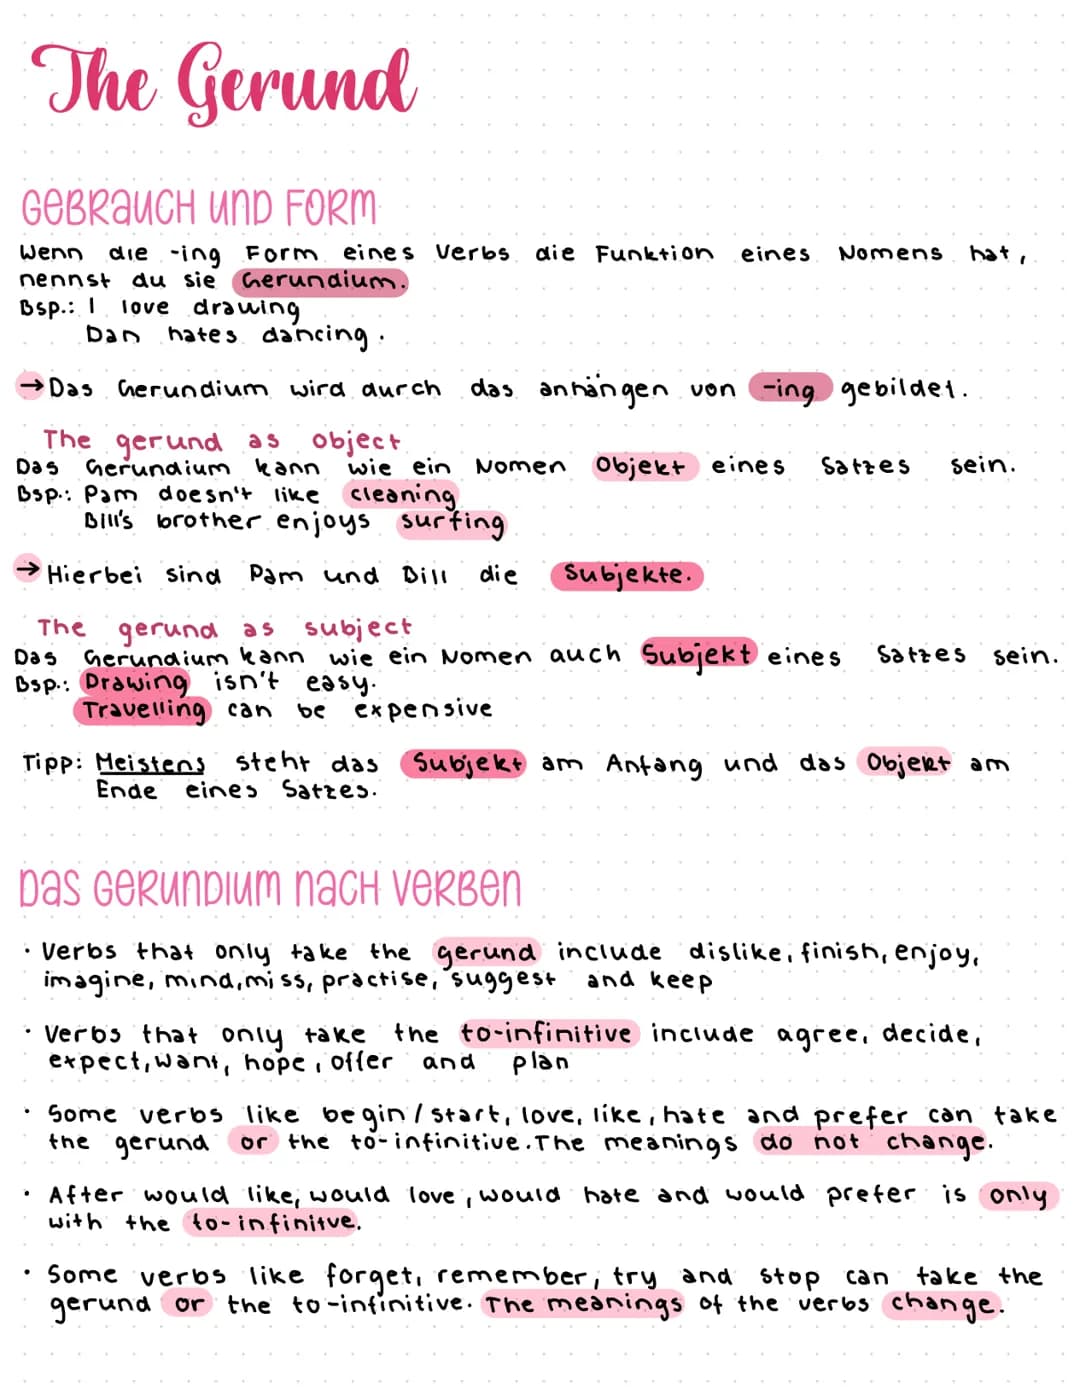 The Gerund
Gebrauch und Form
Wenn die -ing Form eines Verbs die Funktion eines Nomens hat,
nennst du sie Gerundium.
Bsp.: I love drawing
Dan hates dancing.
→ Das Gerundium wird durch das anhängen von -ing gebildet.
The gerund as object
Das Gerundium kann wie ein Nomen Objekt eines Satzes sein.
Bsp.: Pam doesn't like cleaning
Bill's brother enjoys surfing
→ Hierbei sind Pam und Bill die Subjekte.
The gerund as subject
Das Gerundium kann wie ein Nomen auch Subjekt eines Satzes sein.
Bsp.: Drawing isn't easy.
Travelling can be expensive
Tipp: Meistens steht das Subjekt am Anfang und das Objekt am
Ende eines Satzes.
Das Gerundium nach Verben
· Verbs that only take the gerund include dislike, finish, enjoy,
imagine, mind, miss, practise, suggest and keep
· Verbs that only take the to-infinitive include agree, decide,
expect, want, hope, offer and plan
· Some verbs like begin/start, love, like, hate and prefer can take
the gerund or the to-infinitive. The meanings do not change.
· After would like, would love, would hate and would prefer is only
with the to-infinitve.
· Some verbs like forget, remember, try and stop can take the
gerund or the to-infinitive. The meanings of the verbs change.